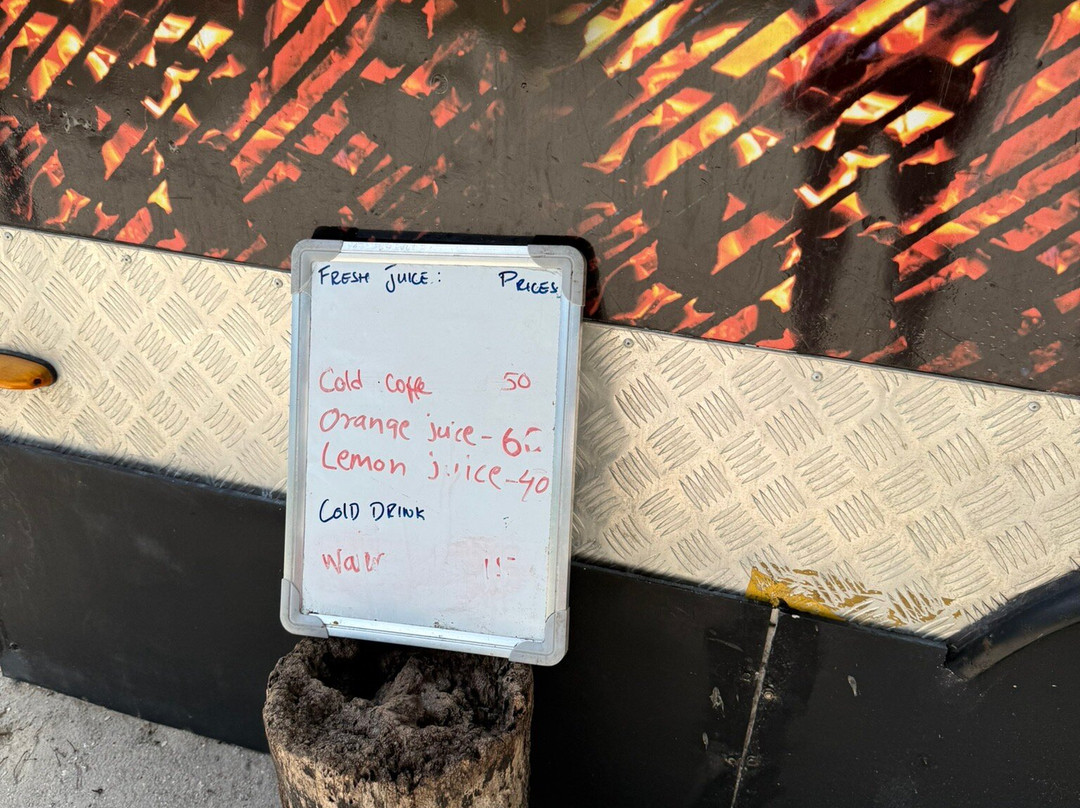 FRESH JUICE: PRICES
Cold coffe 50
Orange juice-
Lemon juice-40
COLD DRINK